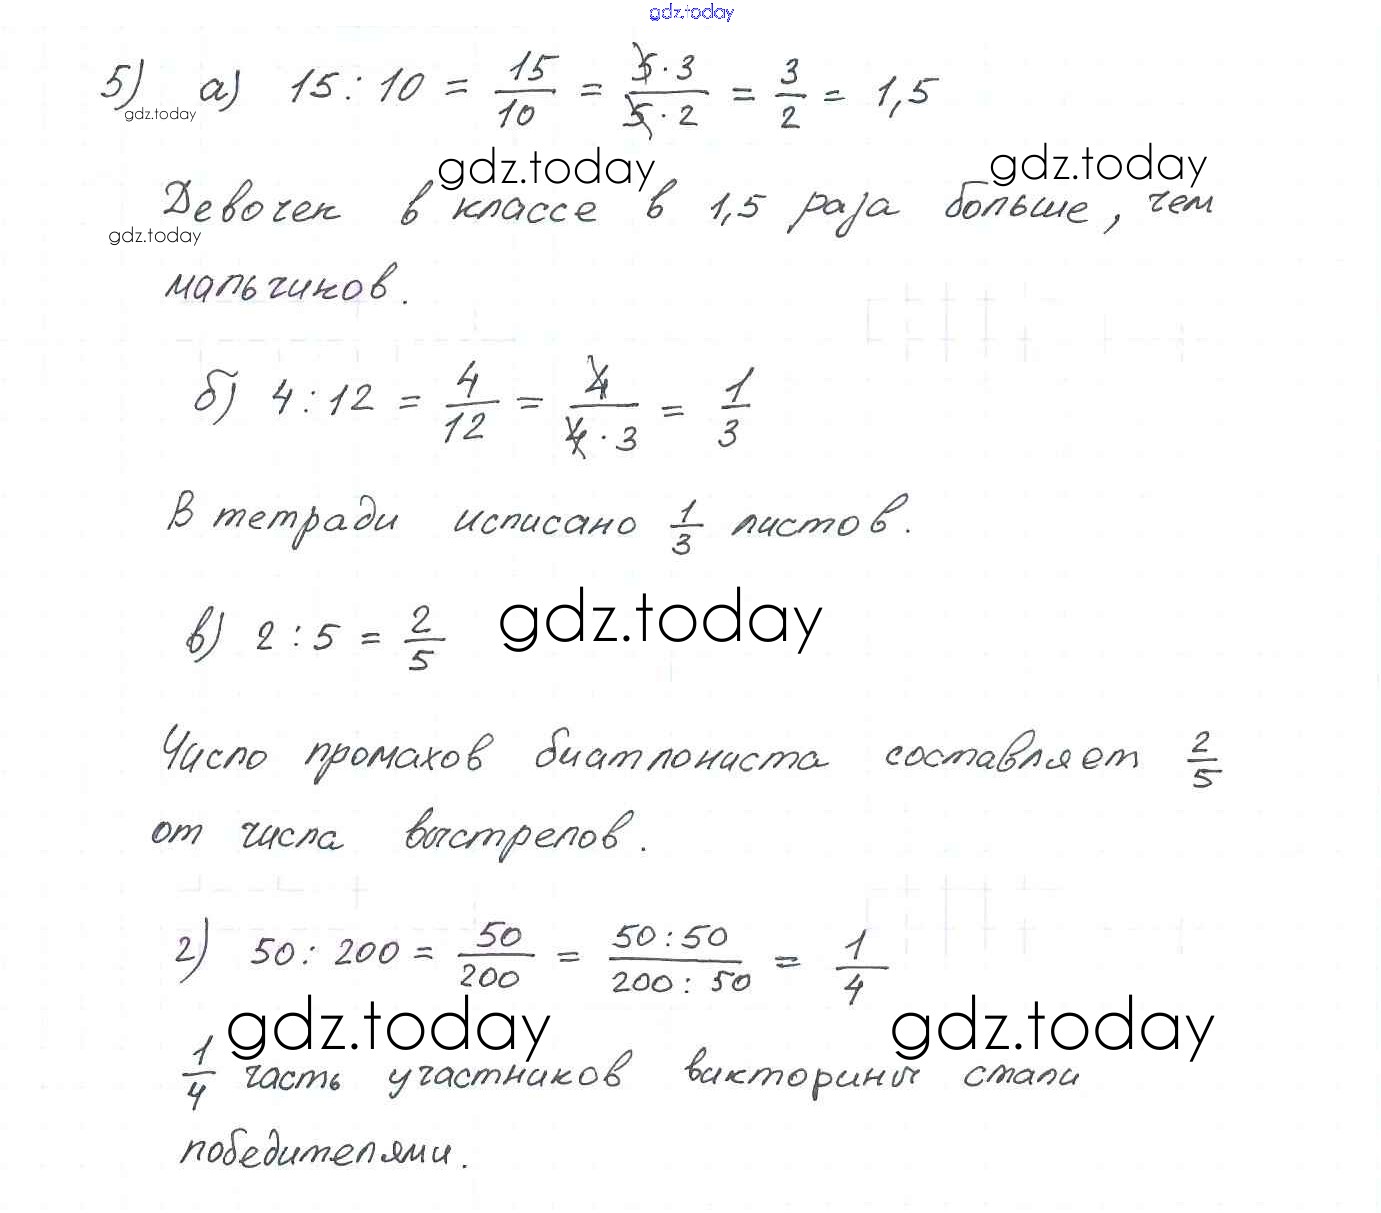 gdz.today
5) а) 15 : 10 = 15/10 = 5·3/5·2 = 3/2 = 1,5
gdz.today
gdz.today gdz.today
Девочек в классе в 1,5 раза больше, чем
gdz.today
мальчиков.
б) 4 : 12 = 4/12 = 4/4·3 = 1/3
В тетради исписано 1/3 листов.
в) 2 : 5 = 2/5 gdz.today
Число промахов биатлониста составляет 2/5
от числа выстрелов.
г) 50 : 200 = 50/200 = 50:50/200:50 = 1/4
gdz.today gdz.today
1/4 часть участников викторины стали
победителями.